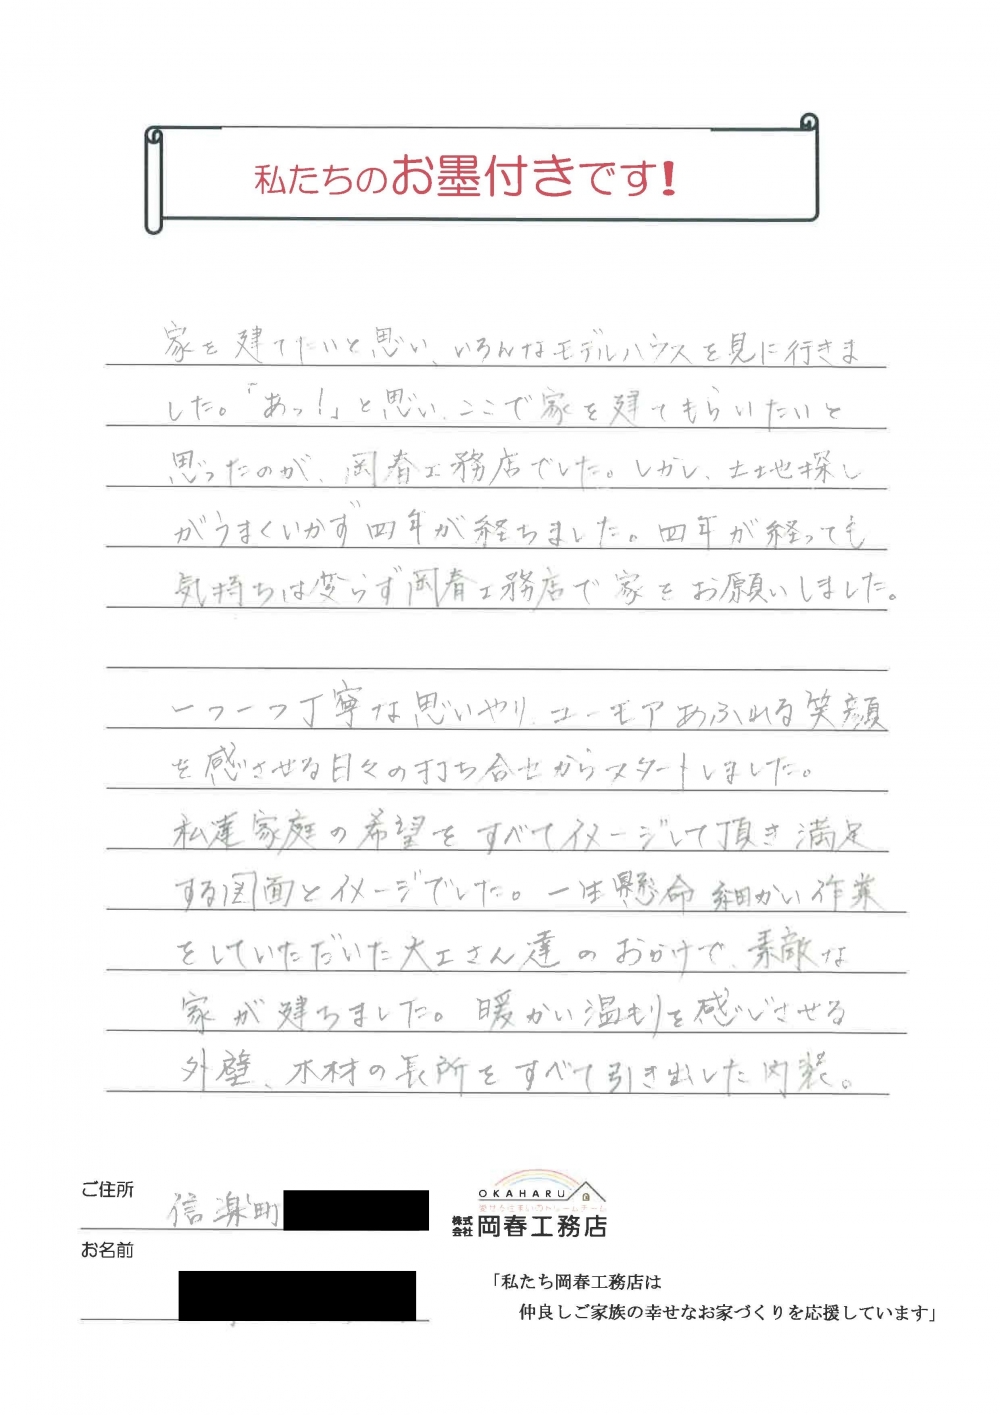 私たちのお墨付きです!
家を建てたいと思い、いろんなモデルハウスを見に行きま
した。「あっ!」と思い、ここで家を建ててもらいたいと
思ったのが、岡春工務店でした。しかし、土地探し
がうまくいかず四年が経ちました。四年が経っても
気持ちは変らず岡春工務店で家をお願いしました。
一つ一つ丁寧な思いやり、ユーモアあふれる笑顔
を感させる日々の打ち合せからスタートしました。
私達家庭の希望をすべてイメージして頂き満足
する図面とイメージでした。一生懸命細かい作業
をしていただいた大工さん達のおかげで、素敵な
家が建ちました。暖かい温もりを感じさせる
外壁、木材の長所をすべて引き出した内装。
ご住所
信楽町
お名前
OKAHARU
幸せな住まいのドリームチーム
株式会社 岡春工務店
「私たち岡春工務店は
仲良しご家族の幸せなお家づくりを応援しています」